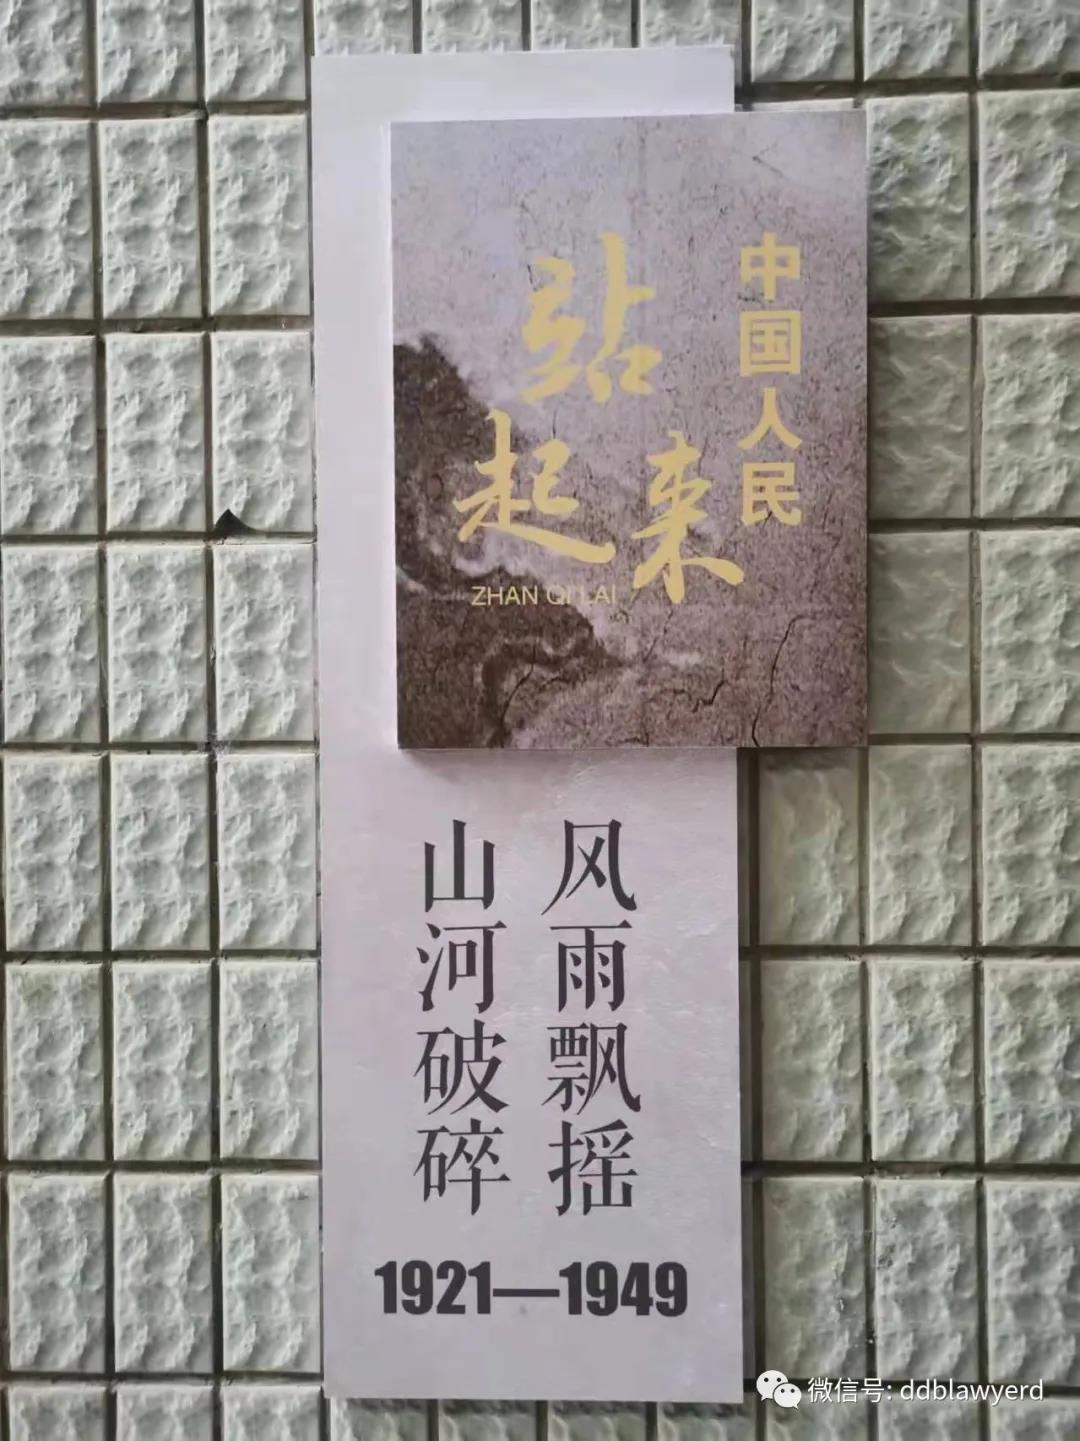 中国人民
站起来
ZHAN QI LAI
风雨飘摇
山河破碎
1921—1949
微信号: ddblawyerd